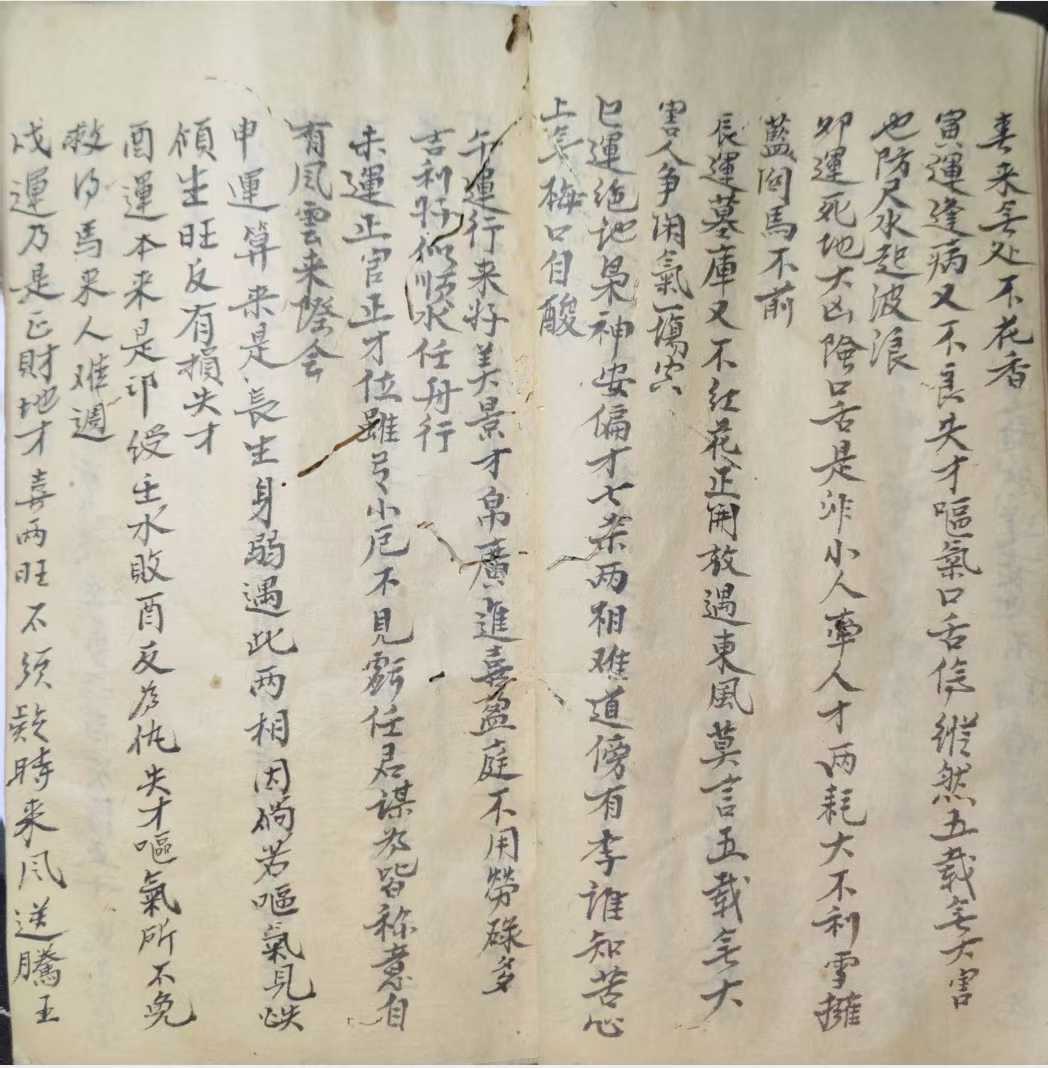 春来无处不花香
寅運逢病又不良失才嘔氣口舌傷縱然五载无大害
也防尺水起波浪
卯運死地大凶險口舌是非小人牽人才两耗大不利雪擁
藍関馬不前
辰運墓庫又不红花正開放遇東風莫言五载无大
害人争闲氣一塲空
巳運绝地枭神安偏才七柒两相难道傍有李谁知苦心
上无梅口自酸
午運行来好美景才帛廣進喜盈庭不用勞碌多
吉利好似顺水任舟行
未運正官正才位雖有小厄不見虧任君謀为皆称意自
有風雲来際会
申運算来是長生身弱遇此两相因倘若嘔氣見
傾生旺反有損失才
酉運本来是印绶壬水敗酉反为仇失才嘔氣所不免
救得馬来人难週
戌運乃是正財地才喜两旺不须疑時来风送騰王